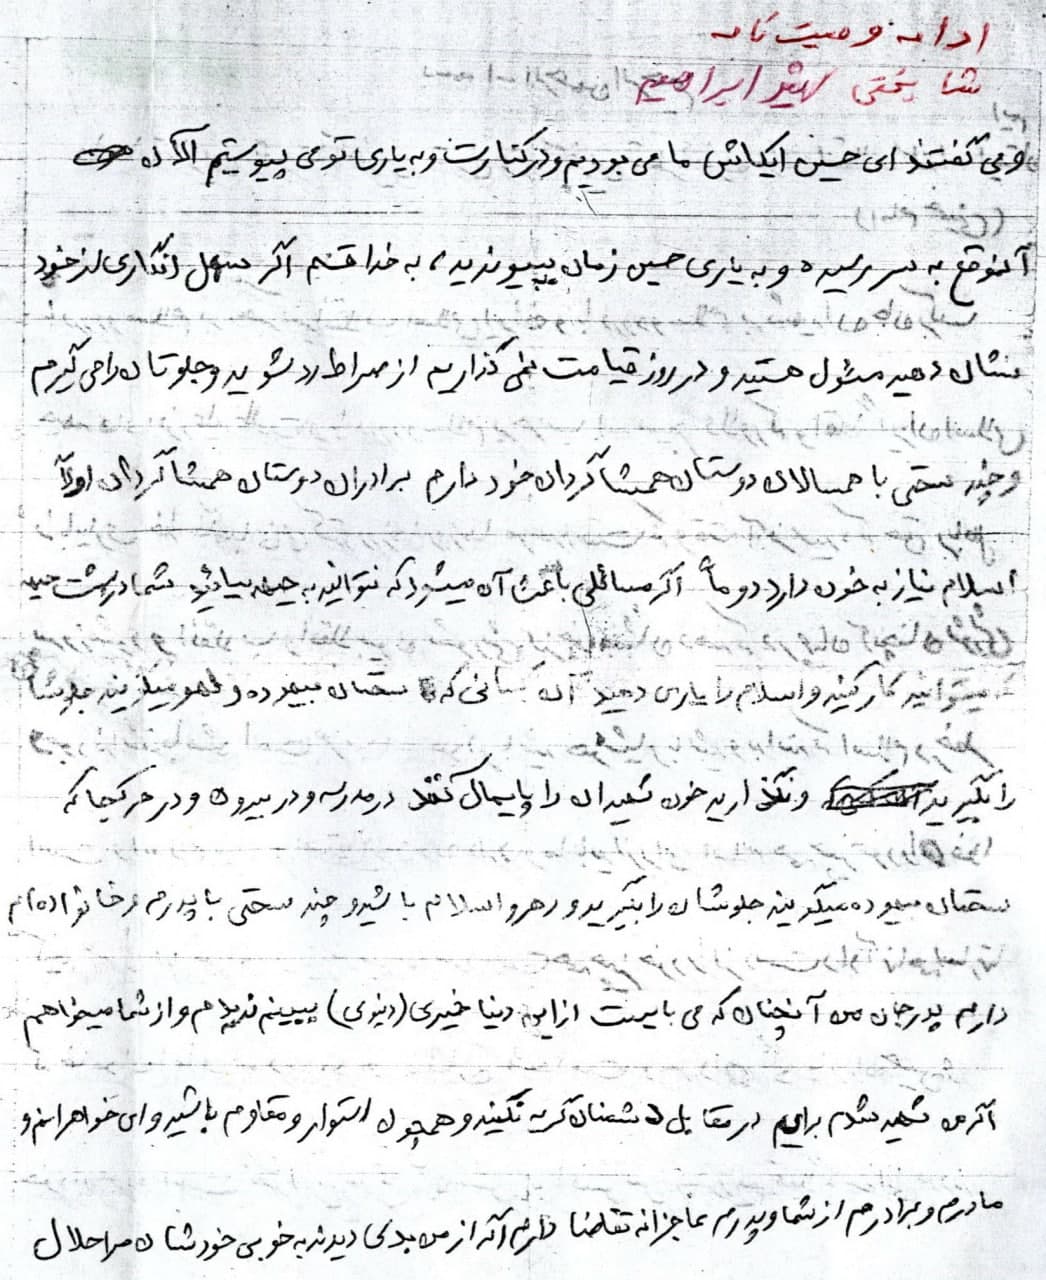 ادامه وصیت نامه
شا بختی لهیئر ابراهیم
ومی گفتند ای حسین ایکاش ما می بودیم و در کنارت و به یاری تو می پیوستیم الآن
آنموقع به سر رسیده و به یاری حسین زمان بپیوندید، به خدا قسم اگر سهل انگاری از خود
نشان دهید مسئول هستید و در روز قیامت نمی گذاریم از صراط رد شوید و جلوتان را می گیرم
و چند سختی با همسالان دوستان همشاگردان خود دارم برادران دوستان همشاگردان اولاً
اسلام نیاز به خون دارد دوماً اگر مسائلی باعث آن میشود که نتوانید به جبهه بیائید شما در پشت جبهه
میتوانید کار کنید و اسلام را یاری دهید آن کسانی که سخنان بیهوده و لغو میگویند جلوشان
را بگیرید و نگذارید خون شهیدان را پایمال کنند در مدرسه و در بیرون و در هر کجا که
سخنان بیهوده میگویند جلوشان را بگیرید و رهرو اسلام باشید و چند سختی با پدرم و خانواده ام
دارم پدر جان من آنچنان که می بایست از این دنیا خیری (دنیوی) ببینم ندیدم و از شما میخواهم
اگر من شهید شدم برایم در مقابل دشمنان گریه نکنید و همچون استوار و مقاوم باشید و ای خواهرانم و
مادرم و برادرم از شما و پدرم عاجزانه تقاضا دارم اگر از من بدی دیدند به خوبی خودشان مرا حلال